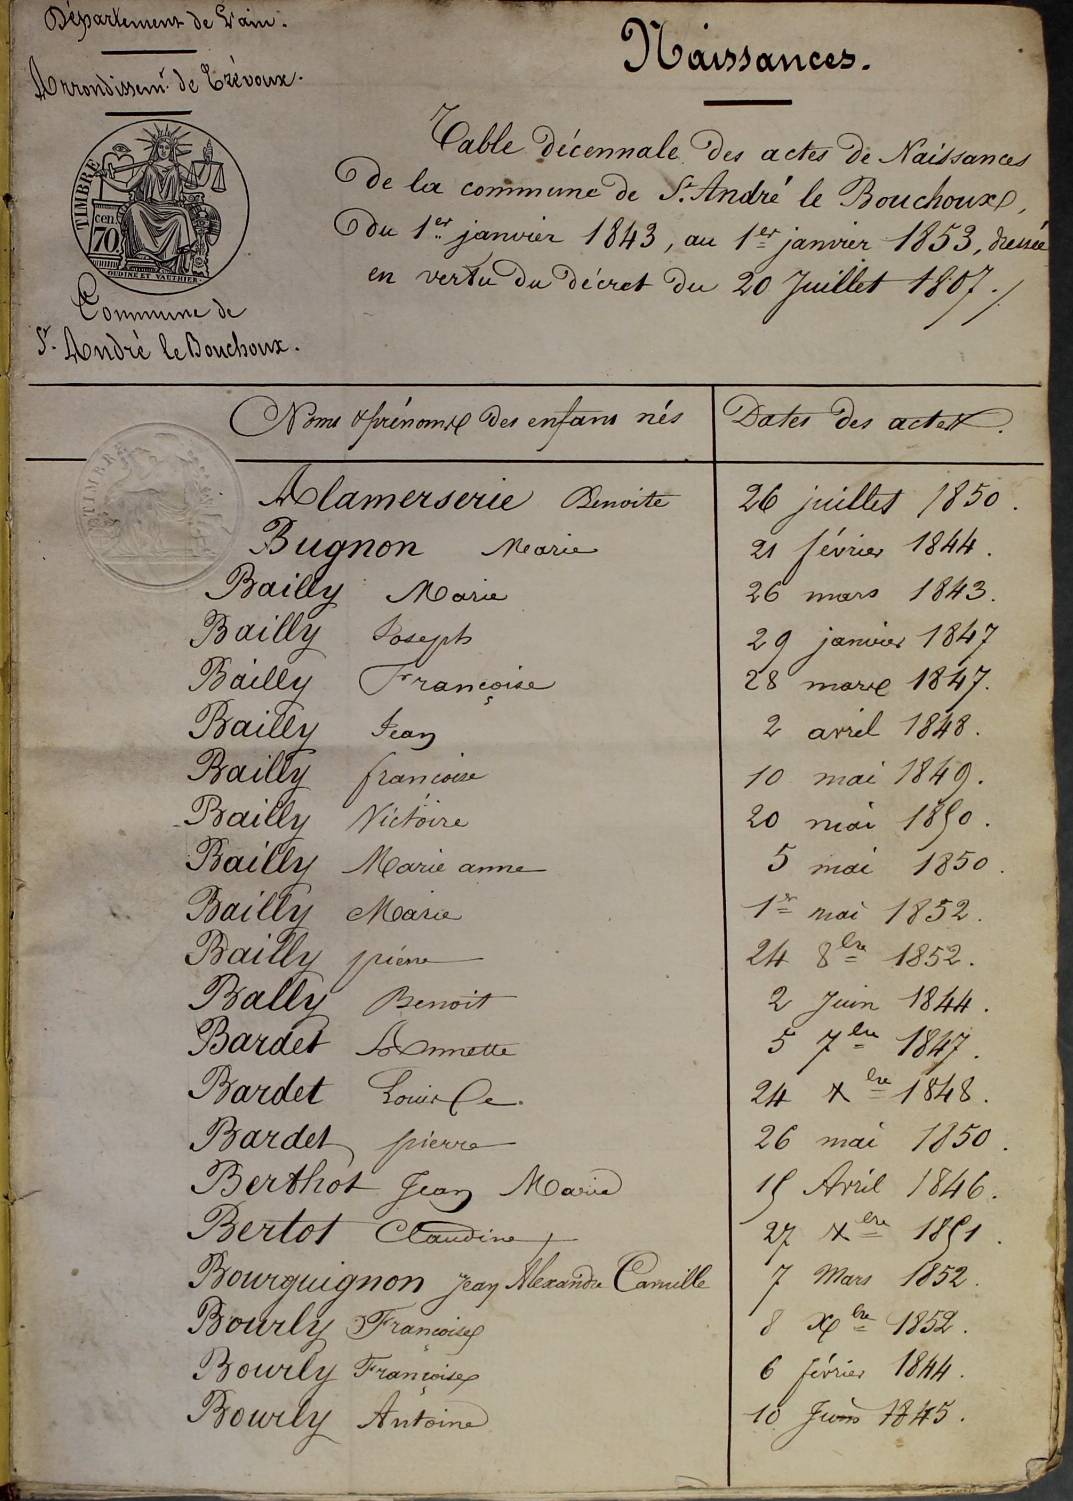 Département de L'ain.
Arrondissemt. de Trévoux.
TIMBRE
70 cen.
OUDINE ET VAUTHIER
Commune de
St. André le Bouchoux.
Naissances.
Table décennale des actes de Naissances
de la commune de St. André le Bouchoux,
du 1er janvier 1843, au 1er janvier 1853, dressée
en vertu du décret du 20 Juillet 1807./
Noms & prénoms des enfans nés Dates des actes.
TIMBRE
Alamerserie Benoite 26 juillet 1850.
Bugnon Marie 21 février 1844.
Bailly Marie 26 mars 1843.
Bailly Joseph 29 janvier 1847
Bailly Françoise 28 mars 1847.
Bailly Jean 2 avril 1848.
Bailly françoise 10 mai 1849.
Bailly Victoire 20 mai 1850.
Bailly Marie anne 5 mai 1850.
Bailly Marie 1er mai 1852.
Bailly pierre 24 8bre 1852.
Bally Benoit 2 Juin 1844.
Bardet 5 7bre 1847.
Bardet Louise 24 Xbre 1848.
Bardet pierre 26 mai 1850.
Berthot Jean Marie 15 Avril 1846.
Bertot Claudine 27 Xbre 1851.
Bourguignon Jean Alexandre Camille 7 Mars 1852.
Bourly Françoise 8 Xbre 1852.
Bourly Françoise 6 février 1844.
Bourly Antoine 10 Juin 1845.